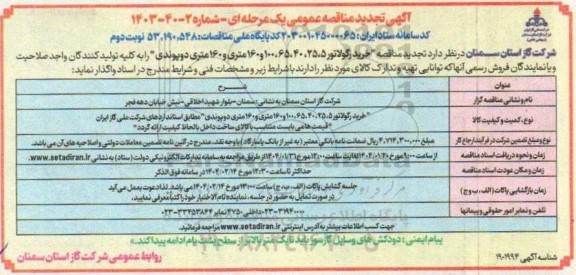 آگهی تجدید مناقصه عمومی یک مرحله ای - شماره ۲-۴۰-۱۴۰۳
کد سامانه ستاد ایران: ۲۰۳۰۰۱۰۴۵۰۰۰۰۶۵ کد پایگاه ملی مناقصات: ۵۳,۱۹۰,۵۴۸ نوبت دوم
شرکت گاز استان سمنان در نظر دارد تجدید مناقصه "خرید رگولاتور ۲۵،۵، ۴۰، ۶۵، ۱۰۰ و ۱۶۰ متری و ۱۶۰ متری دو پوندی" را به کلیه تولید کنندگان واجد صلاحیت
و یا نمایندگان فروش رسمی آنها که توانایی تهیه و تدارک کالای مورد نظر را دارند با شرایط زیر و مشخصات فنی و شرایط مندرج در اسناد واگذار نماید:
عنوان
شرح
نام و نشانی مناقصه گزار
شرکت گاز استان سمنان به نشانی: سمنان - بلوار شهید اخلاقی - نبش خیابان دهه فجر
نوع، کمیت و کیفیت کالا
"خرید رگولاتور ۲۵،۵، ۴۰، ۶۵، ۱۰۰ و ۱۶۰ متری و ۱۶۰ متری دو پوندی" مطابق استانداردهای شرکت ملی گاز ایران
"قیمت ها می بایست متناسب با کالای ساخت داخل با لحاظ کیفیت ارائه گردد"
نوع و مبلغ تضمین شرکت در فرآیند ارجاع کار
مبلغ ۴,۷۱۴,۳۰۰,۰۰۰ ریال ضمانت نامه بانکی معتبر (به غیر از بانک پاسارگاد) یا وجه نقد، مندرج در آئین نامه تضمین معاملات دولتی و اصلاحیه های آن می باشد.
زمان و نحوه دریافت اسناد مناقصه
از ساعت ۹:۰۰ مورخ ۱۴۰۴/۰۱/۲۰ لغایت ساعت ۱۲:۰۰ مورخ ۱۴۰۴/۰۱/۳۱ از طریق مراجعه به سامانه تدارکات الکترونیکی دولت (ستاد) به نشانی www.setadiran.ir
زمان و مکان عودت اسناد مناقصه
حداکثر تا ساعت ۱۲:۳۰ مورخ ۱۴۰۴/۰۲/۱۴ در سامانه فوق الذکر
زمان بازگشایی پاکات (الف، ب و ج)
جلسه گشایش پاکات (الف، ب و ج) ساعت ۱۳:۰۰ مورخ ۱۴۰۴/۰۲/۱۴ می باشد. لذا دعوت بعمل می گردد
در صورت تمایل به حضور در جلسه، نماینده تام الاختیار خود را کتباً معرفی نمایید.
تلفن و نمابر امور حقوقی و پیمانها
۰۲۳-۳۱۹۴۰۰۰۰ - داخلی ۴۷۵ نمابر ۰۲۳-۳۳۴۵۳۸۶۴
جهت کسب اطلاعات بیشتر به آدرس اینترنتی www.setadiran.ir مراجعه فرمائید.
پیام ایمنی: دودکش های وسایل گاز سوز باید تا یک متر بالاتر از سطح پشت بام ادامه پیدا کند.
شناسه آگهی ۱۹۰۱۹۹۴
روابط عمومی شرکت گاز استان سمنان